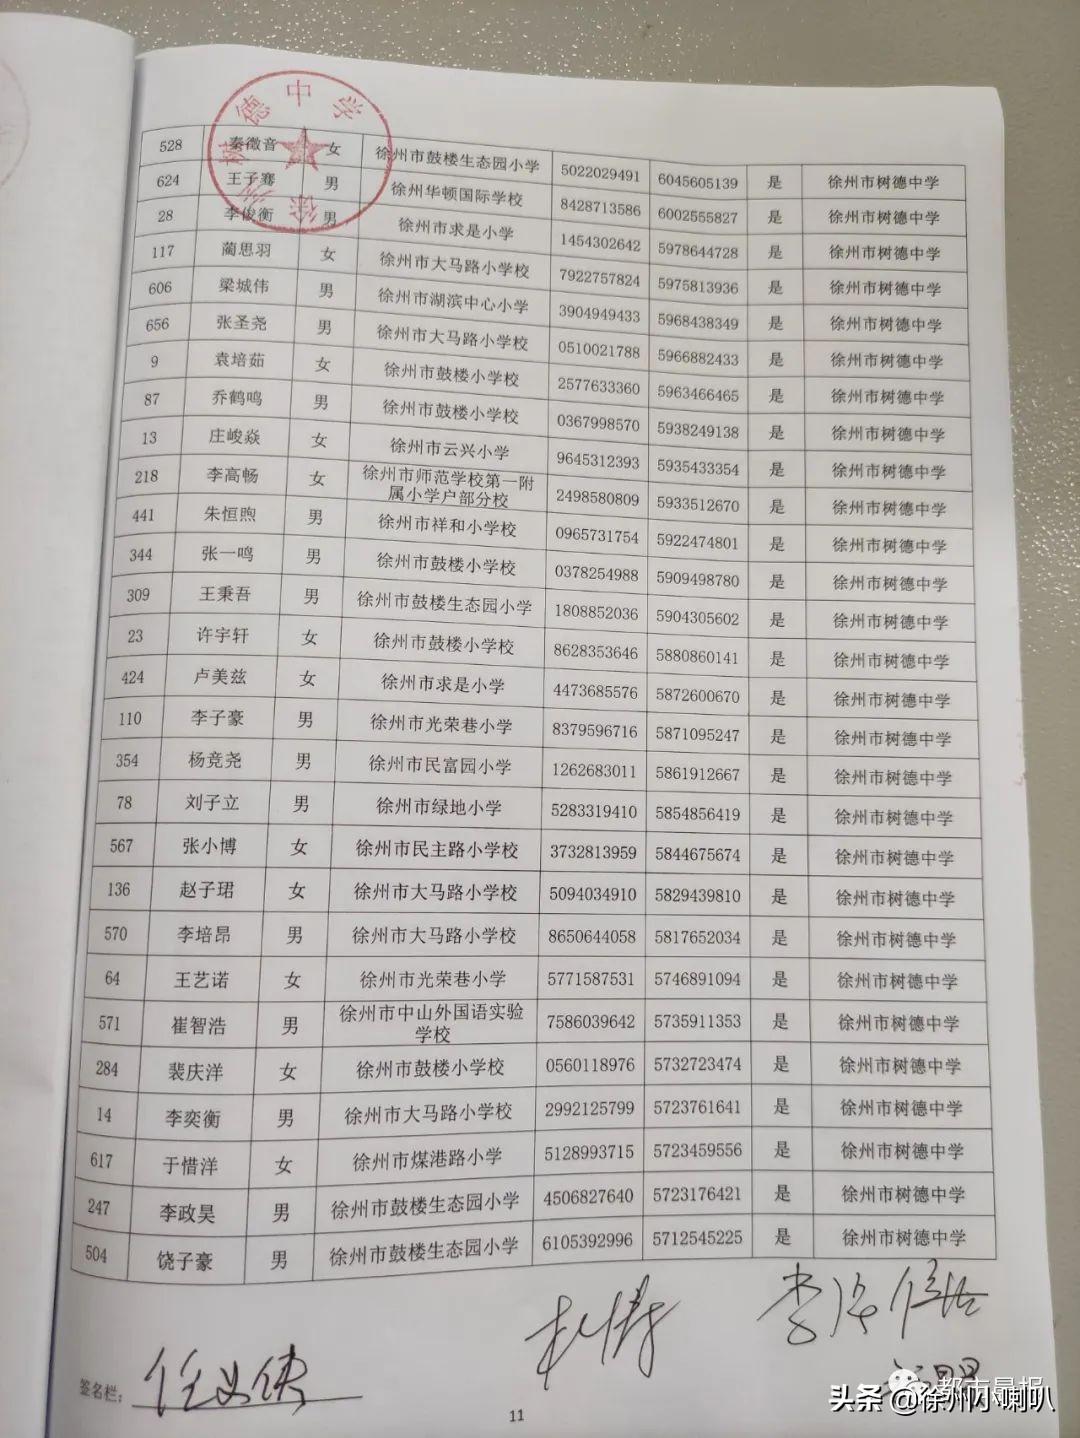 徐州树德中学
528 秦微音 女 徐州市鼓楼生态园小学 5022029491 6045605139 是 徐州市树德中学
624 王子骞 男 徐州华顿国际学校 8428713586 6002555827 是 徐州市树德中学
28 李俊衡 男 徐州市求是小学 1454302642 5978644728 是 徐州市树德中学
117 蔺思羽 女 徐州市大马路小学校 7922757824 5975813936 是 徐州市树德中学
606 梁城伟 男 徐州市湖滨中心小学 3904949433 5968438349 是 徐州市树德中学
656 张圣尧 男 徐州市大马路小学校 0510021788 5966882433 是 徐州市树德中学
9 袁培茹 女 徐州市鼓楼小学校 2577633360 5963466465 是 徐州市树德中学
87 乔鹤鸣 男 徐州市鼓楼小学校 0367998570 5938249138 是 徐州市树德中学
13 庄峻焱 女 徐州市云兴小学 9645312393 5935433354 是 徐州市树德中学
218 李高畅 女 徐州市师范学校第一附
属小学户部分校 2498580809 5933512670 是 徐州市树德中学
441 朱恒煦 男 徐州市祥和小学校 0965731754 5922474801 是 徐州市树德中学
344 张一鸣 男 徐州市鼓楼小学校 0378254988 5909498780 是 徐州市树德中学
309 王秉吾 男 徐州市鼓楼生态园小学 1808852036 5904305602 是 徐州市树德中学
23 许宇轩 女 徐州市鼓楼小学校 8628353646 5880860141 是 徐州市树德中学
424 卢美兹 女 徐州市求是小学 4473685576 5872600670 是 徐州市树德中学
110 李子豪 男 徐州市光荣巷小学 8379596716 5871095247 是 徐州市树德中学
354 杨竞尧 男 徐州市民富园小学 1262683011 5861912667 是 徐州市树德中学
78 刘子立 男 徐州市绿地小学 5283319410 5854856419 是 徐州市树德中学
567 张小博 女 徐州市民主路小学校 3732813959 5844675674 是 徐州市树德中学
136 赵子珺 女 徐州市大马路小学校 5094034910 5829439810 是 徐州市树德中学
570 李培昂 男 徐州市大马路小学校 8650644058 5817652034 是 徐州市树德中学
64 王艺诺 女 徐州市光荣巷小学 5771587531 5746891094 是 徐州市树德中学
571 崔智浩 男 徐州市中山外国语实验
学校 7586039642 5735911353 是 徐州市树德中学
284 裴庆洋 女 徐州市鼓楼小学校 0560118976 5732723474 是 徐州市树德中学
14 李奕衡 男 徐州市大马路小学校 2992125799 5723761641 是 徐州市树德中学
617 于惜洋 女 徐州市煤港路小学 5128993715 5723459556 是 徐州市树德中学
247 李政昊 男 徐州市鼓楼生态园小学 4506827640 5723176421 是 徐州市树德中学
504 饶子豪 男 徐州市鼓楼生态园小学 6105392996 5712545225 是 徐州市树德中学
签名栏：
11
都市晨报
头条 @徐州小喇叭